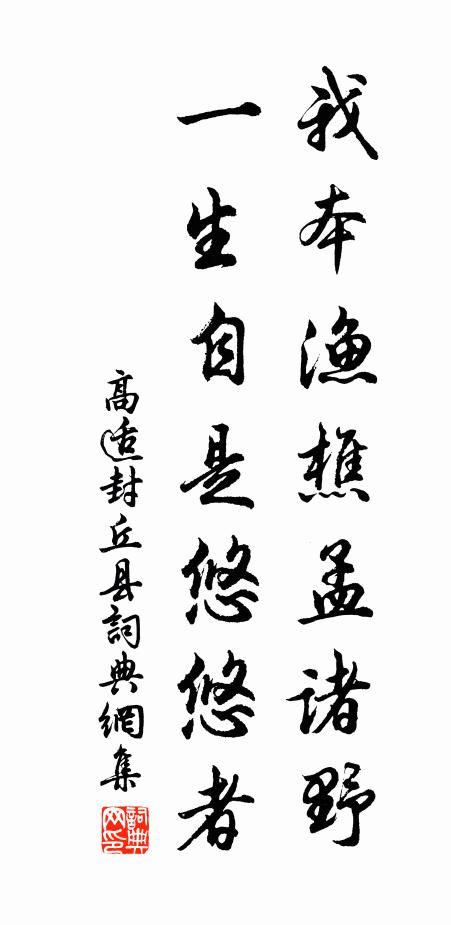 我本渔樵孟诸野
一生自是悠悠者
高适封丘县詞典網集
詞典网印